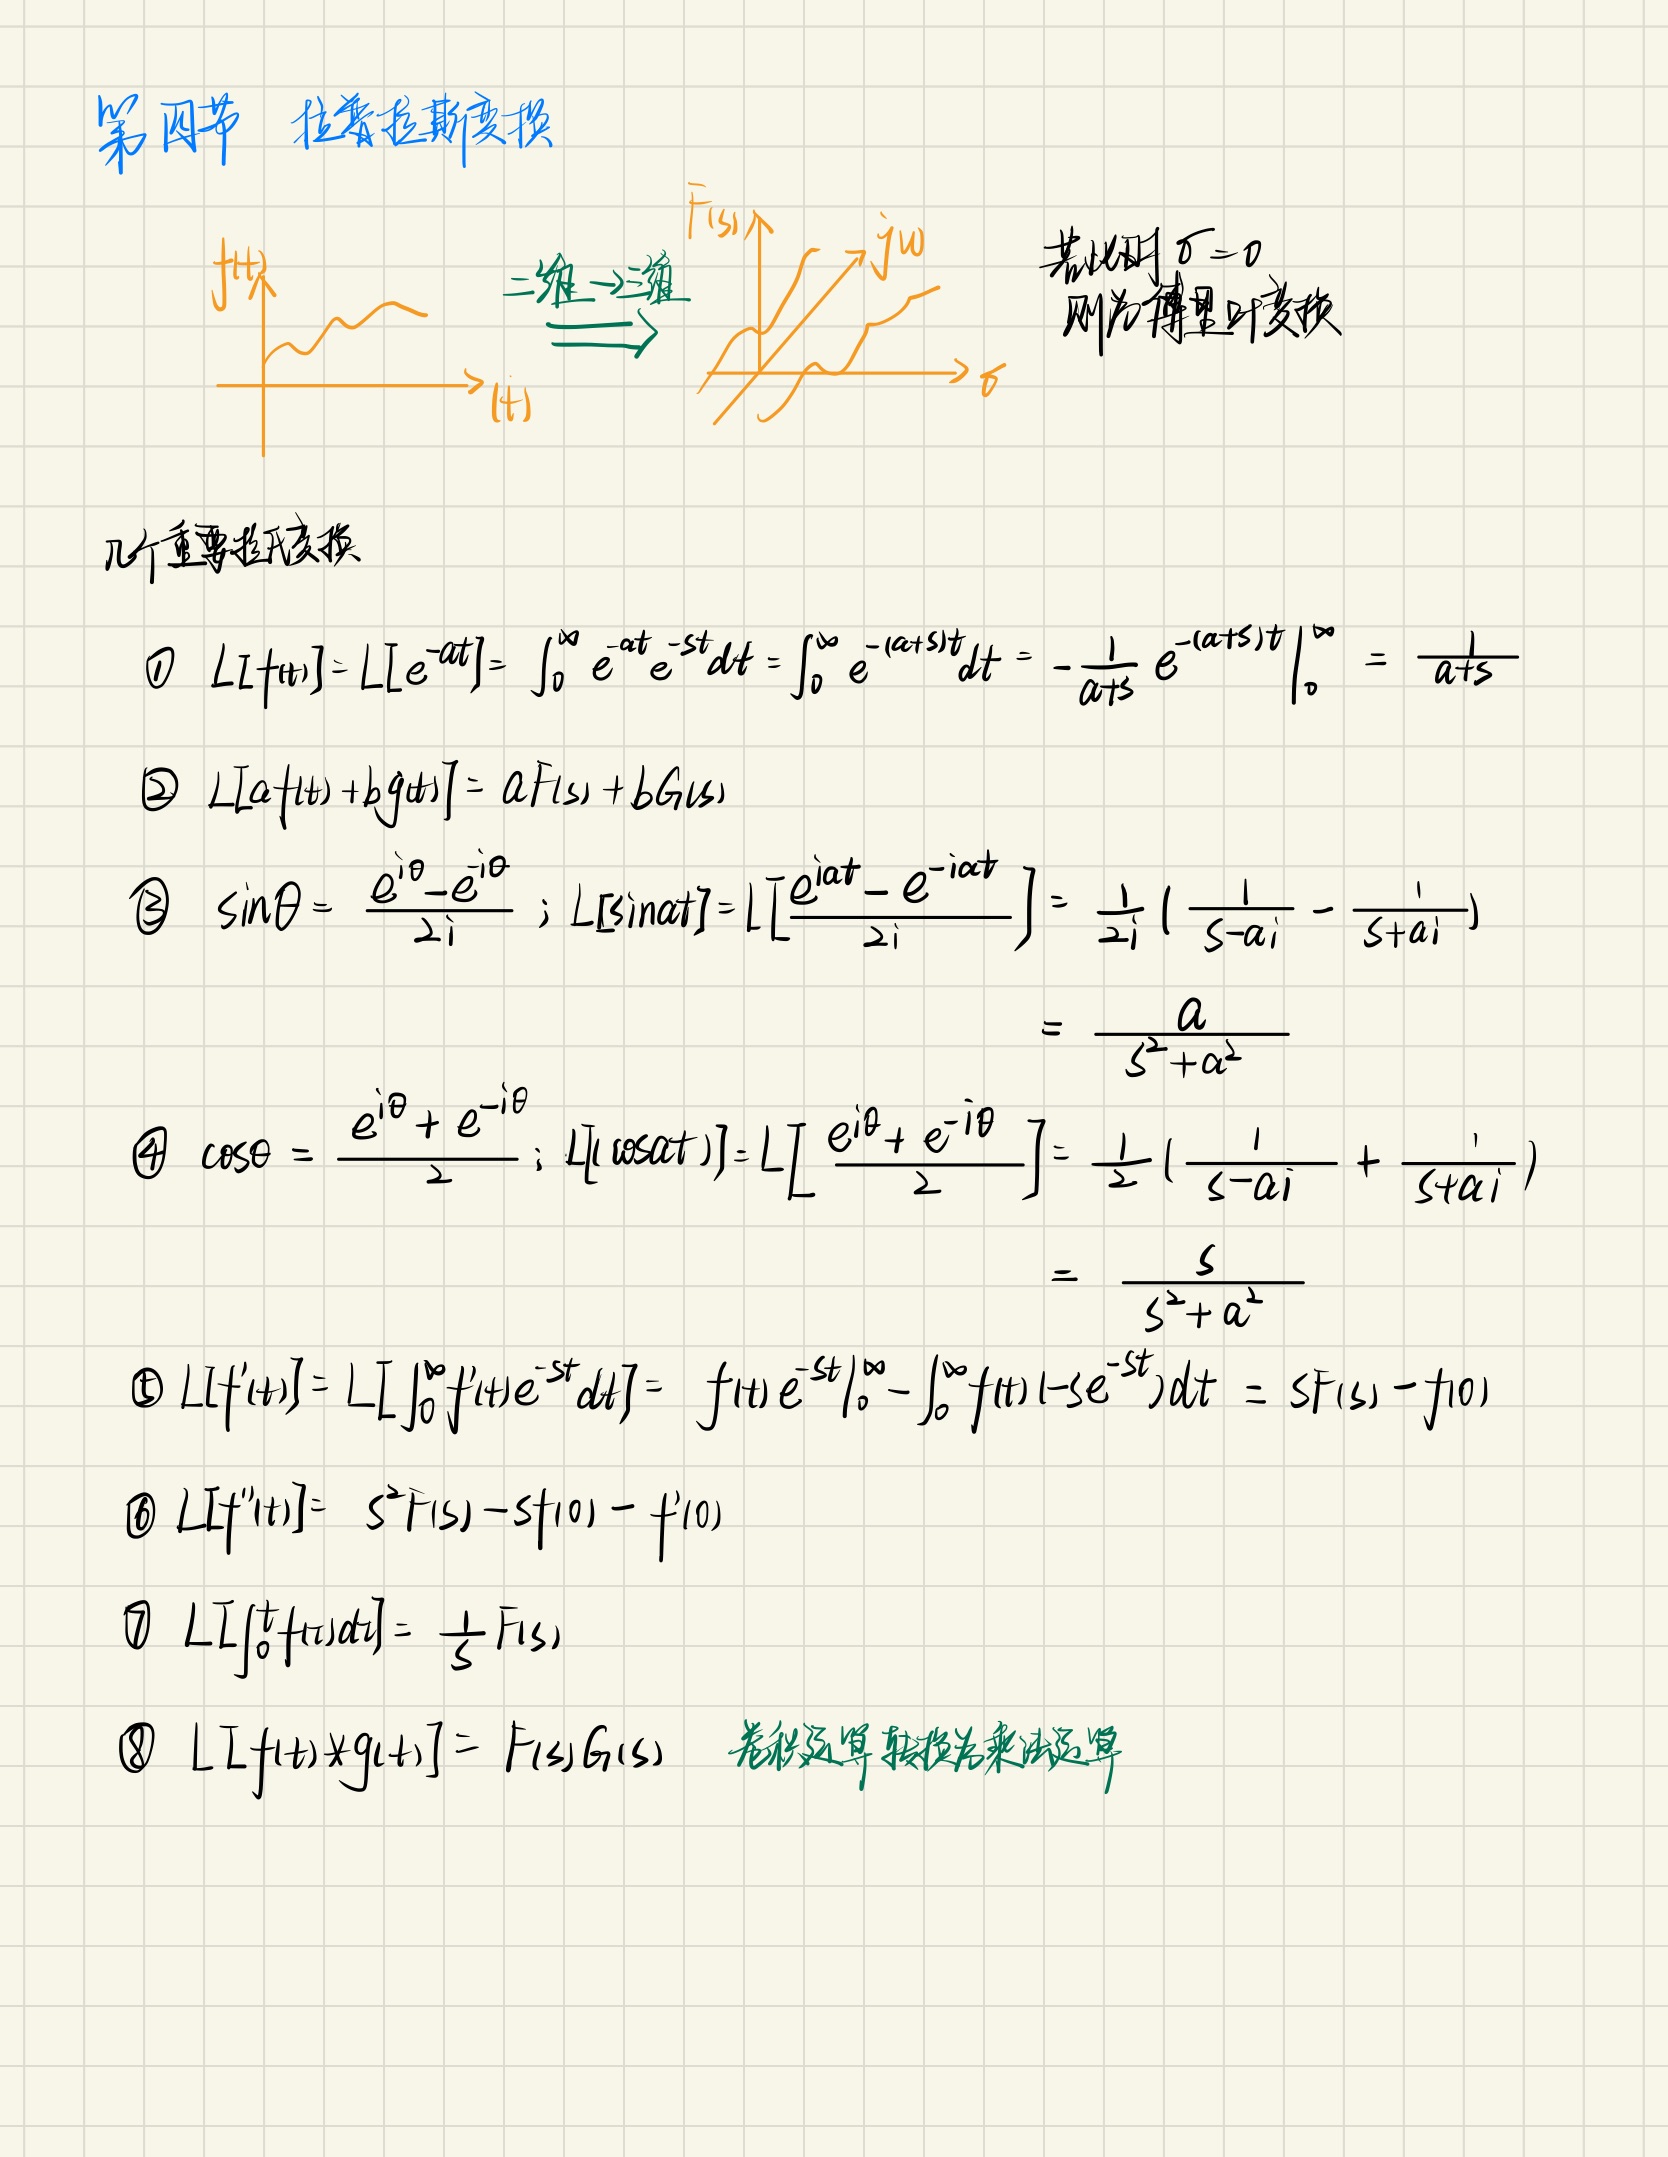 第四节 拉普拉斯变换
f(t)
(t)
二维→三维
F(s)
jω
σ
若此时 σ=0
则为傅里叶变换
几个重要拉氏变换
① L[f(t)] = L[e^{-at}] = ∫_0^∞ e^{-at} e^{-st} dt = ∫_0^∞ e^{-(a+s)t} dt = -\frac{1}{a+s} e^{-(a+s)t} |_0^∞ = \frac{1}{a+s}
② L[af(t)+bg(t)] = aF(s)+bG(s)
③ sinθ = \frac{e^{iθ}-e^{-iθ}}{2i} ; L[sinat] = L[\frac{e^{iat}-e^{-iat}}{2i}] = \frac{1}{2i}(\frac{1}{s-ai} - \frac{1}{s+ai})
= \frac{a}{s^2+a^2}
④ cosθ = \frac{e^{iθ}+e^{-iθ}}{2} ; L[(cosat)] = L[\frac{e^{iθ}+e^{-iθ}}{2}] = \frac{1}{2}(\frac{1}{s-ai} + \frac{1}{s+ai})
= \frac{s}{s^2+a^2}
⑤ L[f'(t)] = L[∫_0^∞ f'(t)e^{-st}dt] = f(t)e^{-st}|_0^∞ - ∫_0^∞ f(t)(-se^{-st})dt = sF(s)-f(0)
⑥ L[f''(t)] = s^2F(s)-sf(0)-f'(0)
⑦ L[∫_0^t f(τ)dτ] = \frac{1}{s}F(s)
⑧ L[f(t)*g(t)] = F(s)G(s) 卷积运算转换为乘法运算